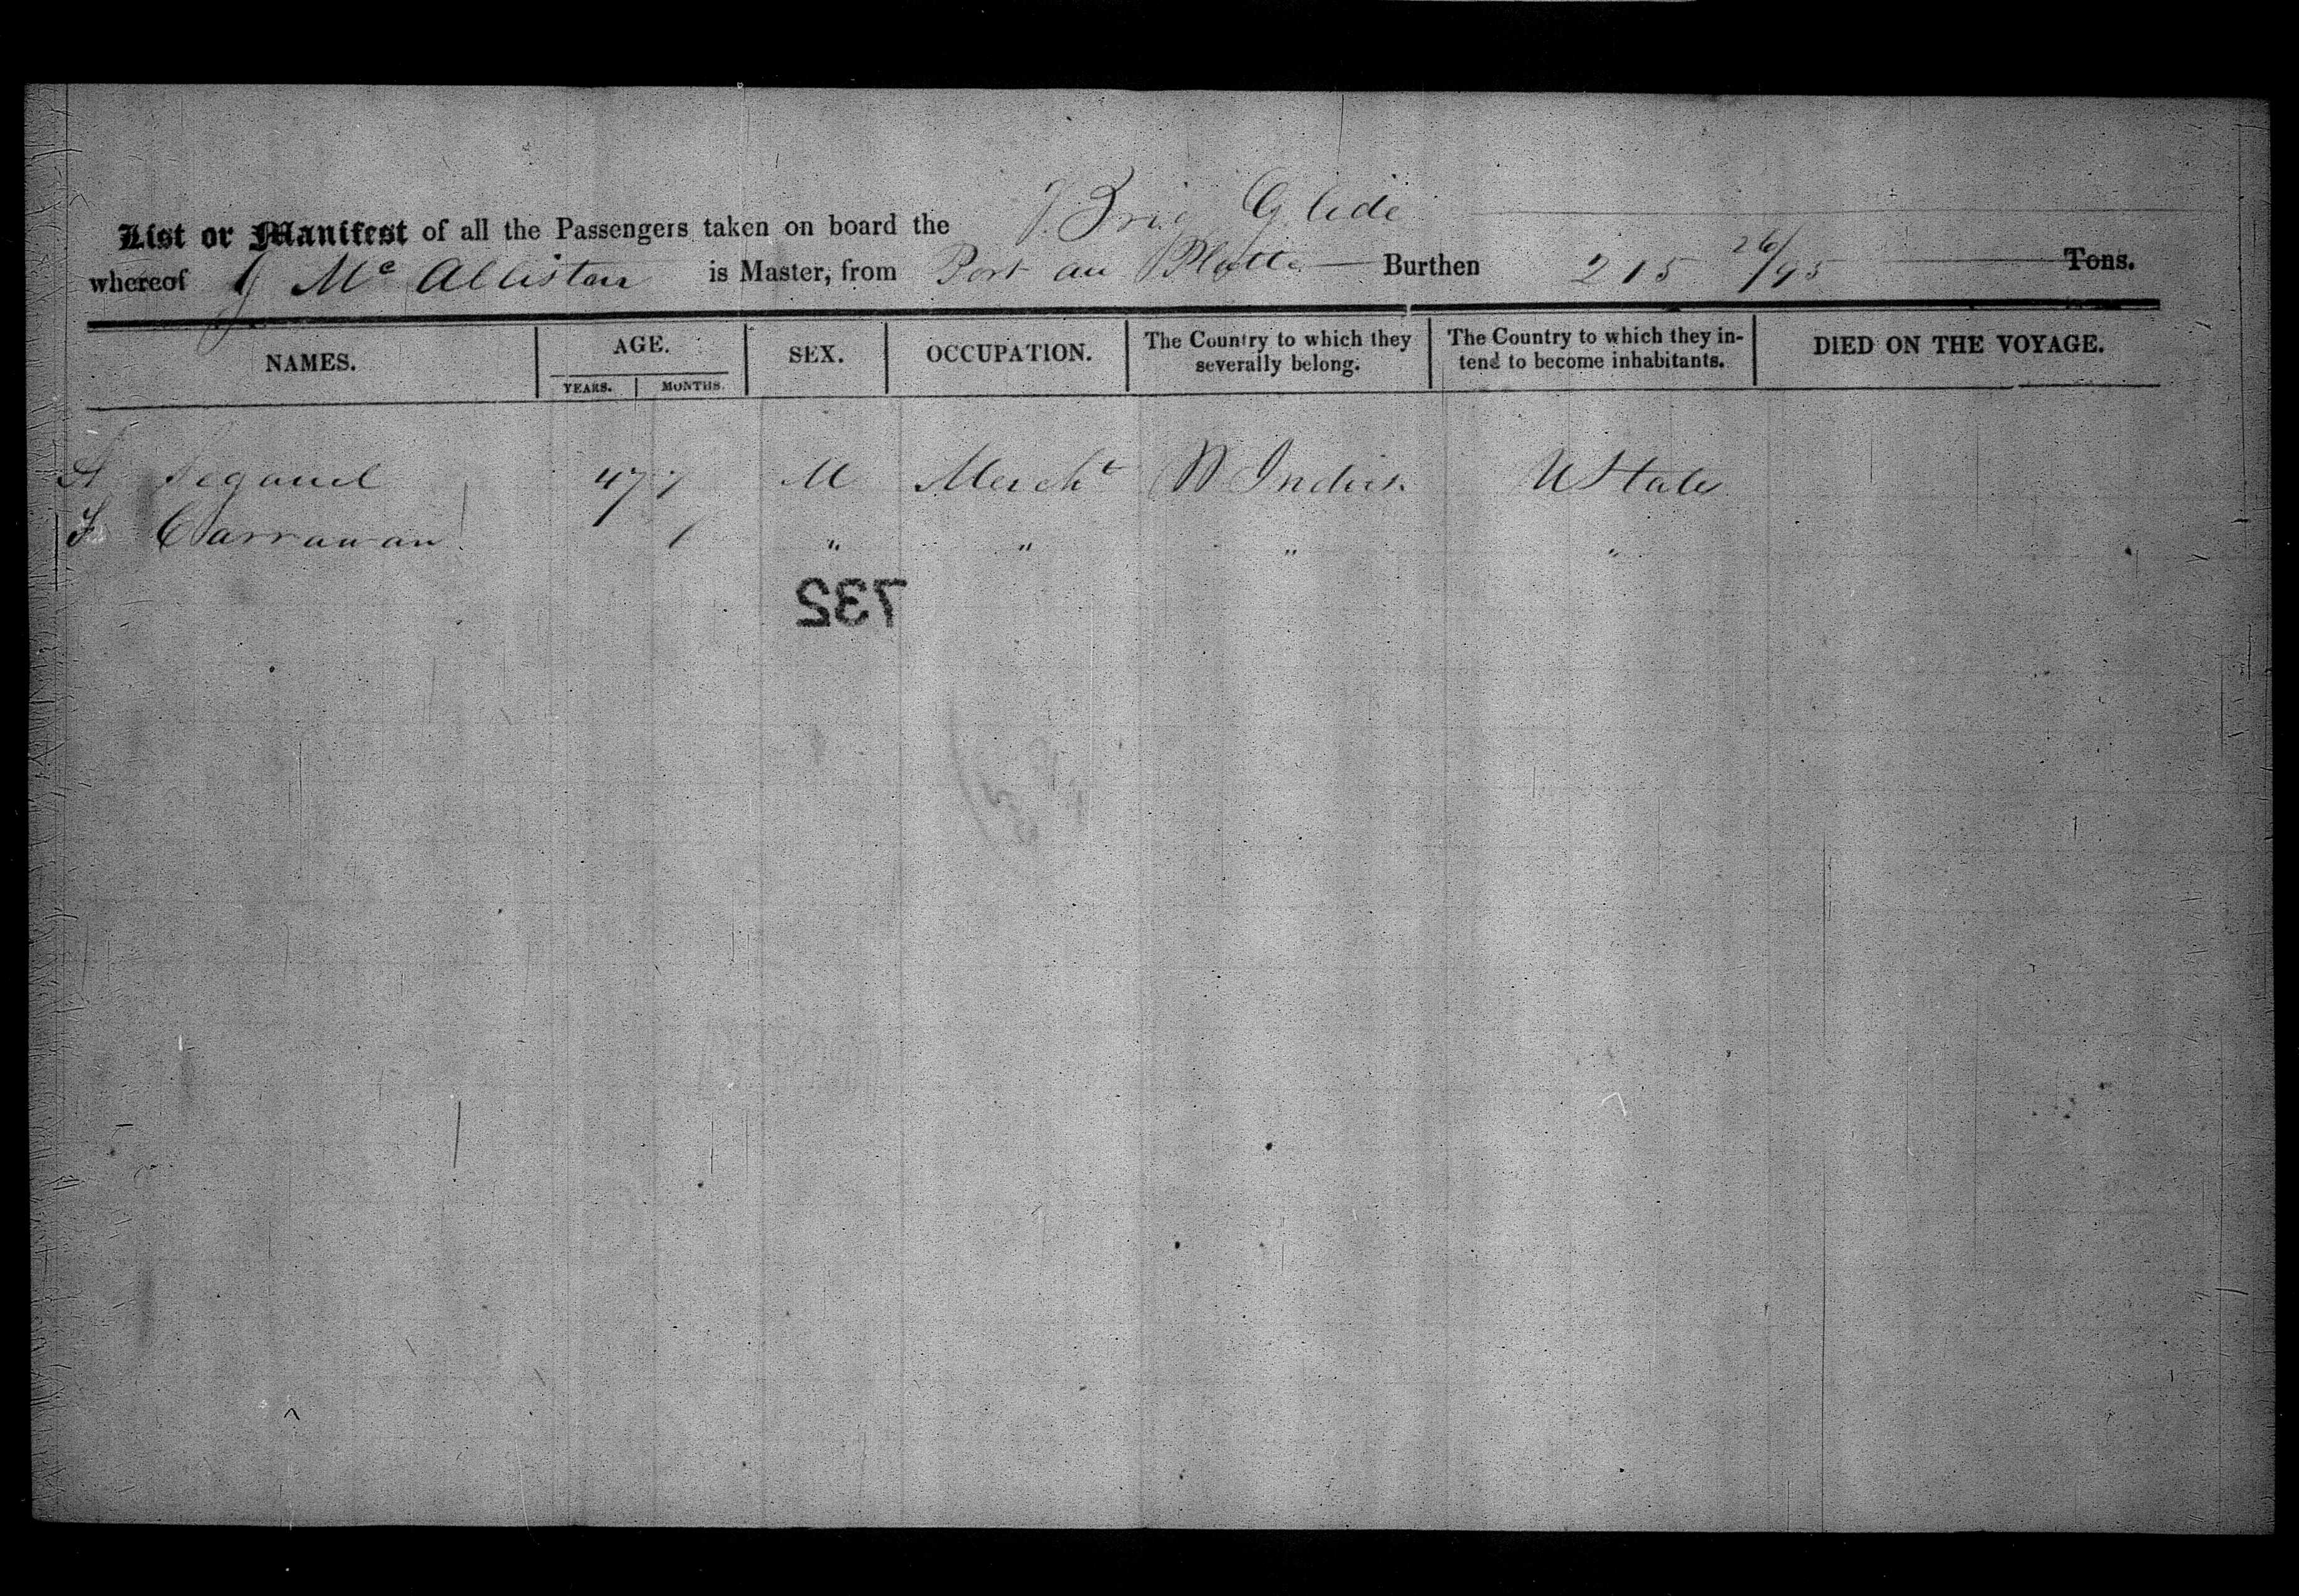 List or Manifest of all the Passengers taken on board the Brig Glide
whereof J Mc Allister is Master, from Port au Platte Burthen 215 26/95 Tons.
NAMES. AGE. YEARS. MONTHS. SEX. OCCUPATION. The Country to which they severally belong. The Country to which they intend to become inhabitants. DIED ON THE VOYAGE.
A Segaud 47 M Mercht W Indies U States
F Carrawan " " " "
732